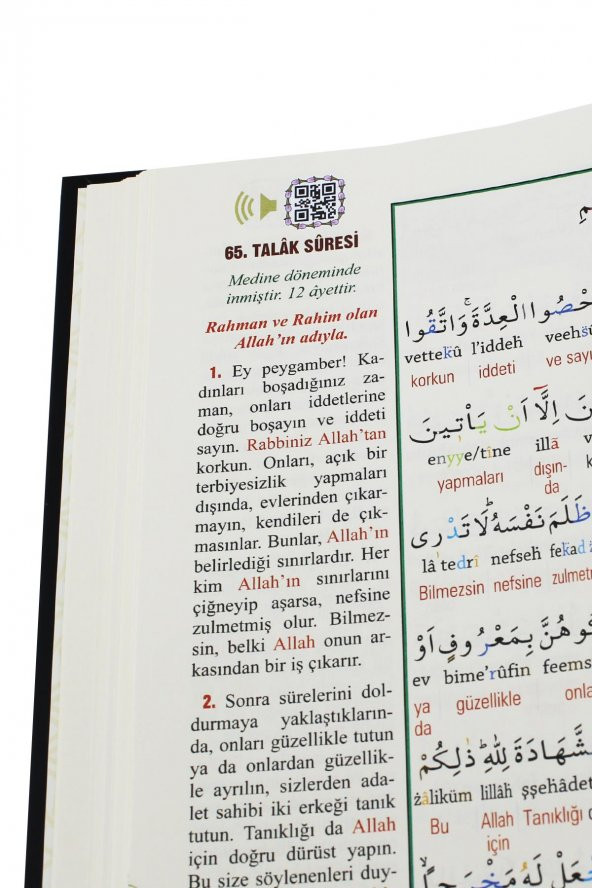 65. TALÂK SÛRESİ
Medine döneminde
inmiştir. 12 âyettir.
Rahman ve Rahim olan
Allah'ın adıyla.
1. Ey peygamber! Ka-
dınları boşadığınız za-
man, onları iddetlerine
doğru boşayın ve iddeti
sayın. Rabbiniz Allah'tan
korkun. Onları, açık bir
terbiyesizlik yapmaları
dışında, evlerinden çıkar-
mayın, kendileri de çık-
masınlar. Bunlar, Allah'ın
belirlediği sınırlardır. Her
kim Allah'ın sınırlarını
çiğneyip aşarsa, nefsine
zulmetmiş olur. Bilmez-
sin, belki Allah onun ar-
kasından bir iş çıkarır.
2. Sonra sürelerini dol-
durmaya yaklaştıkların-
da, onları güzellikle tutun
ya da onlardan güzellik-
le ayrılın, sizlerden ada-
let sahibi iki erkeği tanık
tutun. Tanıklığı da Allah
için doğru dürüst yapın.
Bu size söylenenleri duy-
حْصُوا الْعِدَّةَۚ وَاتَّقُوا
vettekû l'iddeh veehsû
korkun iddeti ve sayı
نَ اِلَّٓا اَنْ يَأْتٖينَ
enyye/tîne illâ
yapmaları dışın-
da
ظَلَمَ نَفْسَهُۜ لَا تَدْرٖى
lâ tedrî nefseh fekad
Bilmezsin nefsine zulmetm
هُنَّ بِمَعْرُوفٍ اَوْ
ev bime'rûfin feems
ya güzellikle onla
da
الشَّهَادَةَ لِلّٰهِۜ ذٰلِكُمْ
żâliküm lillâh şşehâdet
Bu Allah Tanıklığı
için